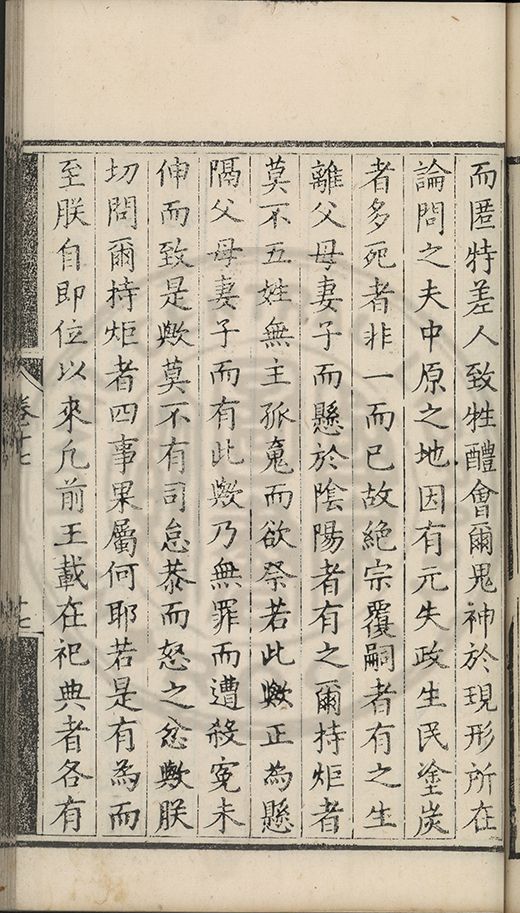 而匿特差人致牲醴會爾鬼神於現形所在
論問之夫中原之地因有元失政生民塗炭
者多死者非一而已故絶宗覆嗣者有之生
離父母妻子而懸於陰陽者有之爾持炬者
莫不五姓無主孤魂而欲祭若此歟正為懸
隔父母妻子而有此歟乃無罪而遭殺冤未
伸而致是歟莫不有司怠恭而怒之忿歟朕
切問爾持炬者四事果屬何耶若是有為而
至朕自即位以來凢前王載在祀典者各有
卷十七
十七